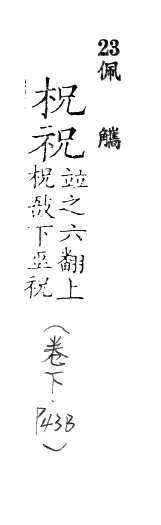 23佩 觿
柷祝
竝之六翻上
柷敔下巫祝
（卷下·P43B）